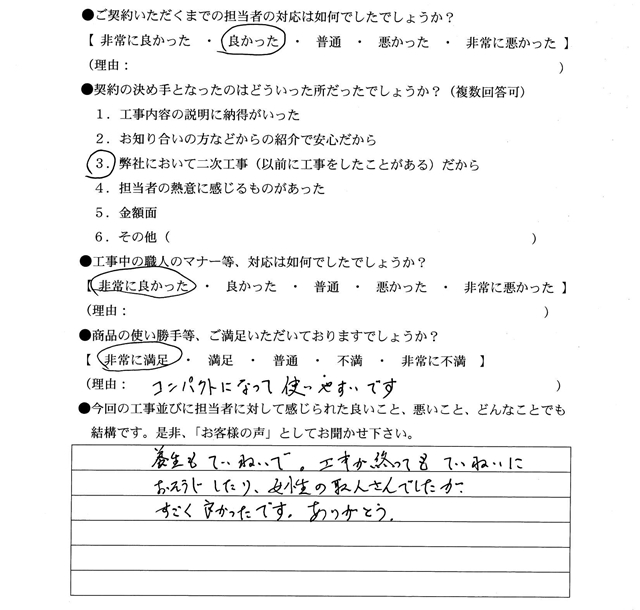 ●ご契約いただくまでの担当者の対応は如何でしたでしょうか？
【 非常に良かった ・ 良かった ・ 普通 ・ 悪かった ・ 非常に悪かった 】
（理由： ）
●契約の決め手となったのはどういった所だったでしょうか？（複数回答可）
１．工事内容の説明に納得がいった
２．お知り合いの方などからの紹介で安心だから
３．弊社において二次工事（以前に工事をしたことがある）だから
４．担当者の熱意に感じるものがあった
５．金額面
６．その他（ ）
●工事中の職人のマナー等、対応は如何でしたでしょうか？
【 非常に良かった ・ 良かった ・ 普通 ・ 悪かった ・ 非常に悪かった 】
（理由： ）
●商品の使い勝手等、ご満足いただいておりますでしょうか？
【 非常に満足 ・ 満足 ・ 普通 ・ 不満 ・ 非常に不満 】
（理由： コンパクトになって使いやすいです ）
●今回の工事並びに担当者に対して感じられた良いこと、悪いこと、どんなことでも
結構です。是非、「お客様の声」としてお聞かせ下さい。
養生もていねいで。工事が終ってもていねいに
おそうじしたり、女性の職人さんでしたが
すごく良かったです。ありがとう。